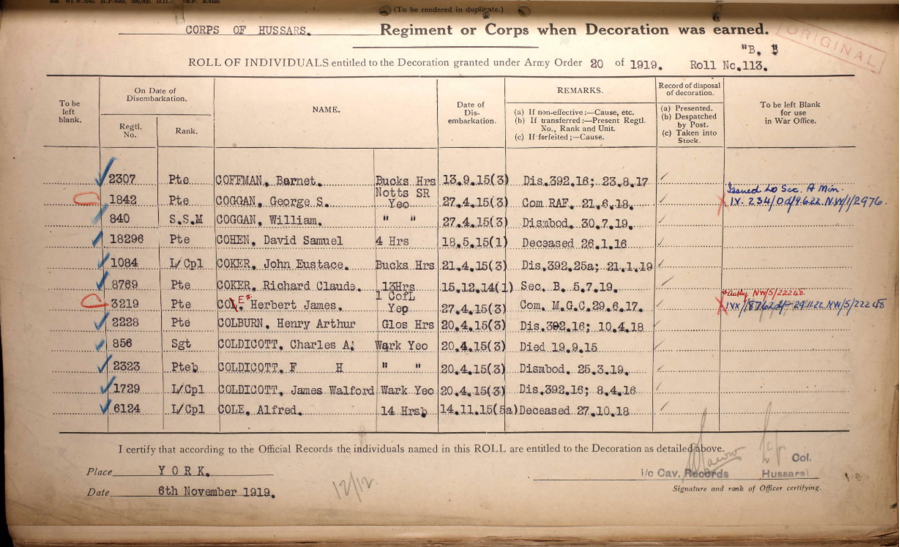 (To be rendered in duplicate.)
CORPS OF HUSSARS. Regiment or Corps when Decoration was earned.
"B. "
ORIGINAL
ROLL OF INDIVIDUALS entitled to the Decoration granted under Army Order 20 of 1919. Roll No. 113.
To be left blank.
On Date of Disembarkation.
Regtl. No.
Rank.
NAME.
Date of Dis-embarkation.
REMARKS.
(a) If non-effective:—Cause, etc.
(b) If transferred:—Present Regtl. No., Rank and Unit.
(c) If forfeited;—Cause.
Record of disposal of decoration.
(a) Presented.
(b) Despatched by Post.
(c) Taken into Stock.
To be left Blank for use in War Office.
2307 Pte COFFMAN, Barnet. Bucks Hrs 13.9.15(3) Dis.392.16; 23.8.17
1842 Pte COGGAN, George S. Notts SR Yeo 27.4.15(3) Com RAF, 21.6.18. Issued to Sec. A Min.
840 S.S.M COGGAN, William. " " 27.4.15(3) Dismbod. 30.7.19.
18296 Pte COHEN, David Samuel 4 Hrs 18.5.15(1) Deceased 26.1.16
1084 L/Cpl COKER, John Eustace. Bucks Hrs 21.4.15(3) Dis.392.25a; 21.1.19
8769 Pte COKER, Richard Claude. 13Hrs 15.12.14(1) Sec. B. 5.7.19.
3219 Pte COLES, Herbert James. 1 CofL Yeo 27.4.15(3) Com. M.G.C,29.6.17.
2228 Pte COLBURN, Henry Arthur Glos Hrs 20.4.15(3) Dis.392.16; 10.4.18
856 Sgt COLDICOTT, Charles A; Wark Yeo 20.4.15(3) Died 19.9.15
2323 Pteb COLDICOTT, F H " " 20.4.15(3) Dismbod. 25.3.19.
1729 L/Cpl COLDICOTT, James Walford Wark Yeo 20.4.15(3) Dis.392.16; 8.4.16
6124 L/Cpl COLE, Alfred. 14 Hrsb 14.11.15(5a) Deceased 27.10.18
I certify that according to the Official Records the individuals named in this ROLL are entitled to the Decoration as detailed above.
Place YORK.
Col.
i/c Cav. Records Hussars
Date 6th November 1919.
12/12
Signature and rank of Officer certifying.